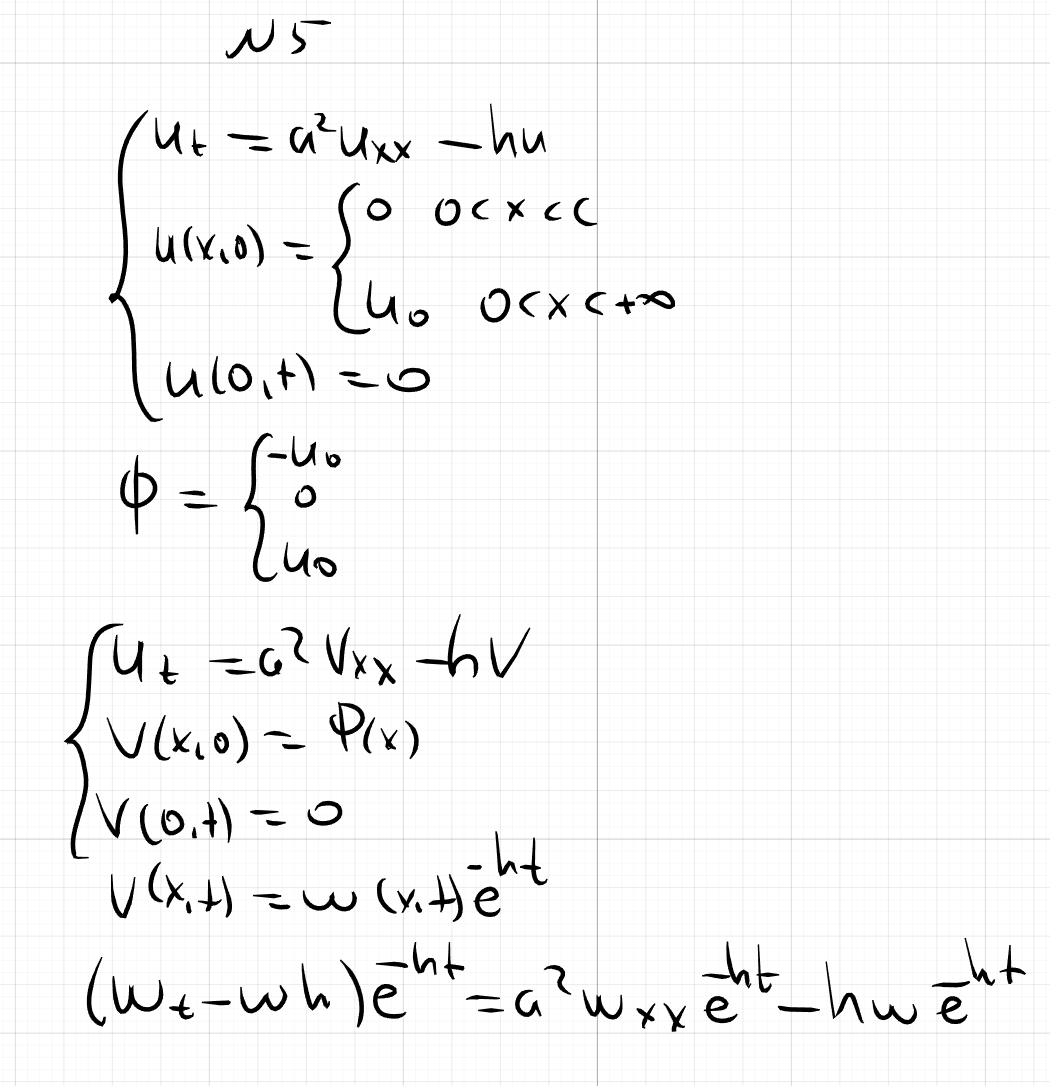 N5
u_t = a²u_xx - hu
u(x,0) = { 0 0<x<c
u_0 0<x<+∞
u(0,t) = 0
ϕ = { -u_0
0
u_0
u_t = a² V_xx - hV
V(x,0) = Φ(x)
V(0,t) = 0
V(x,t) = w(x,t) e^{-ht}
(w_t - wh) e^{-ht} = a² w_xx e^{-ht} - hw e^{-ht}